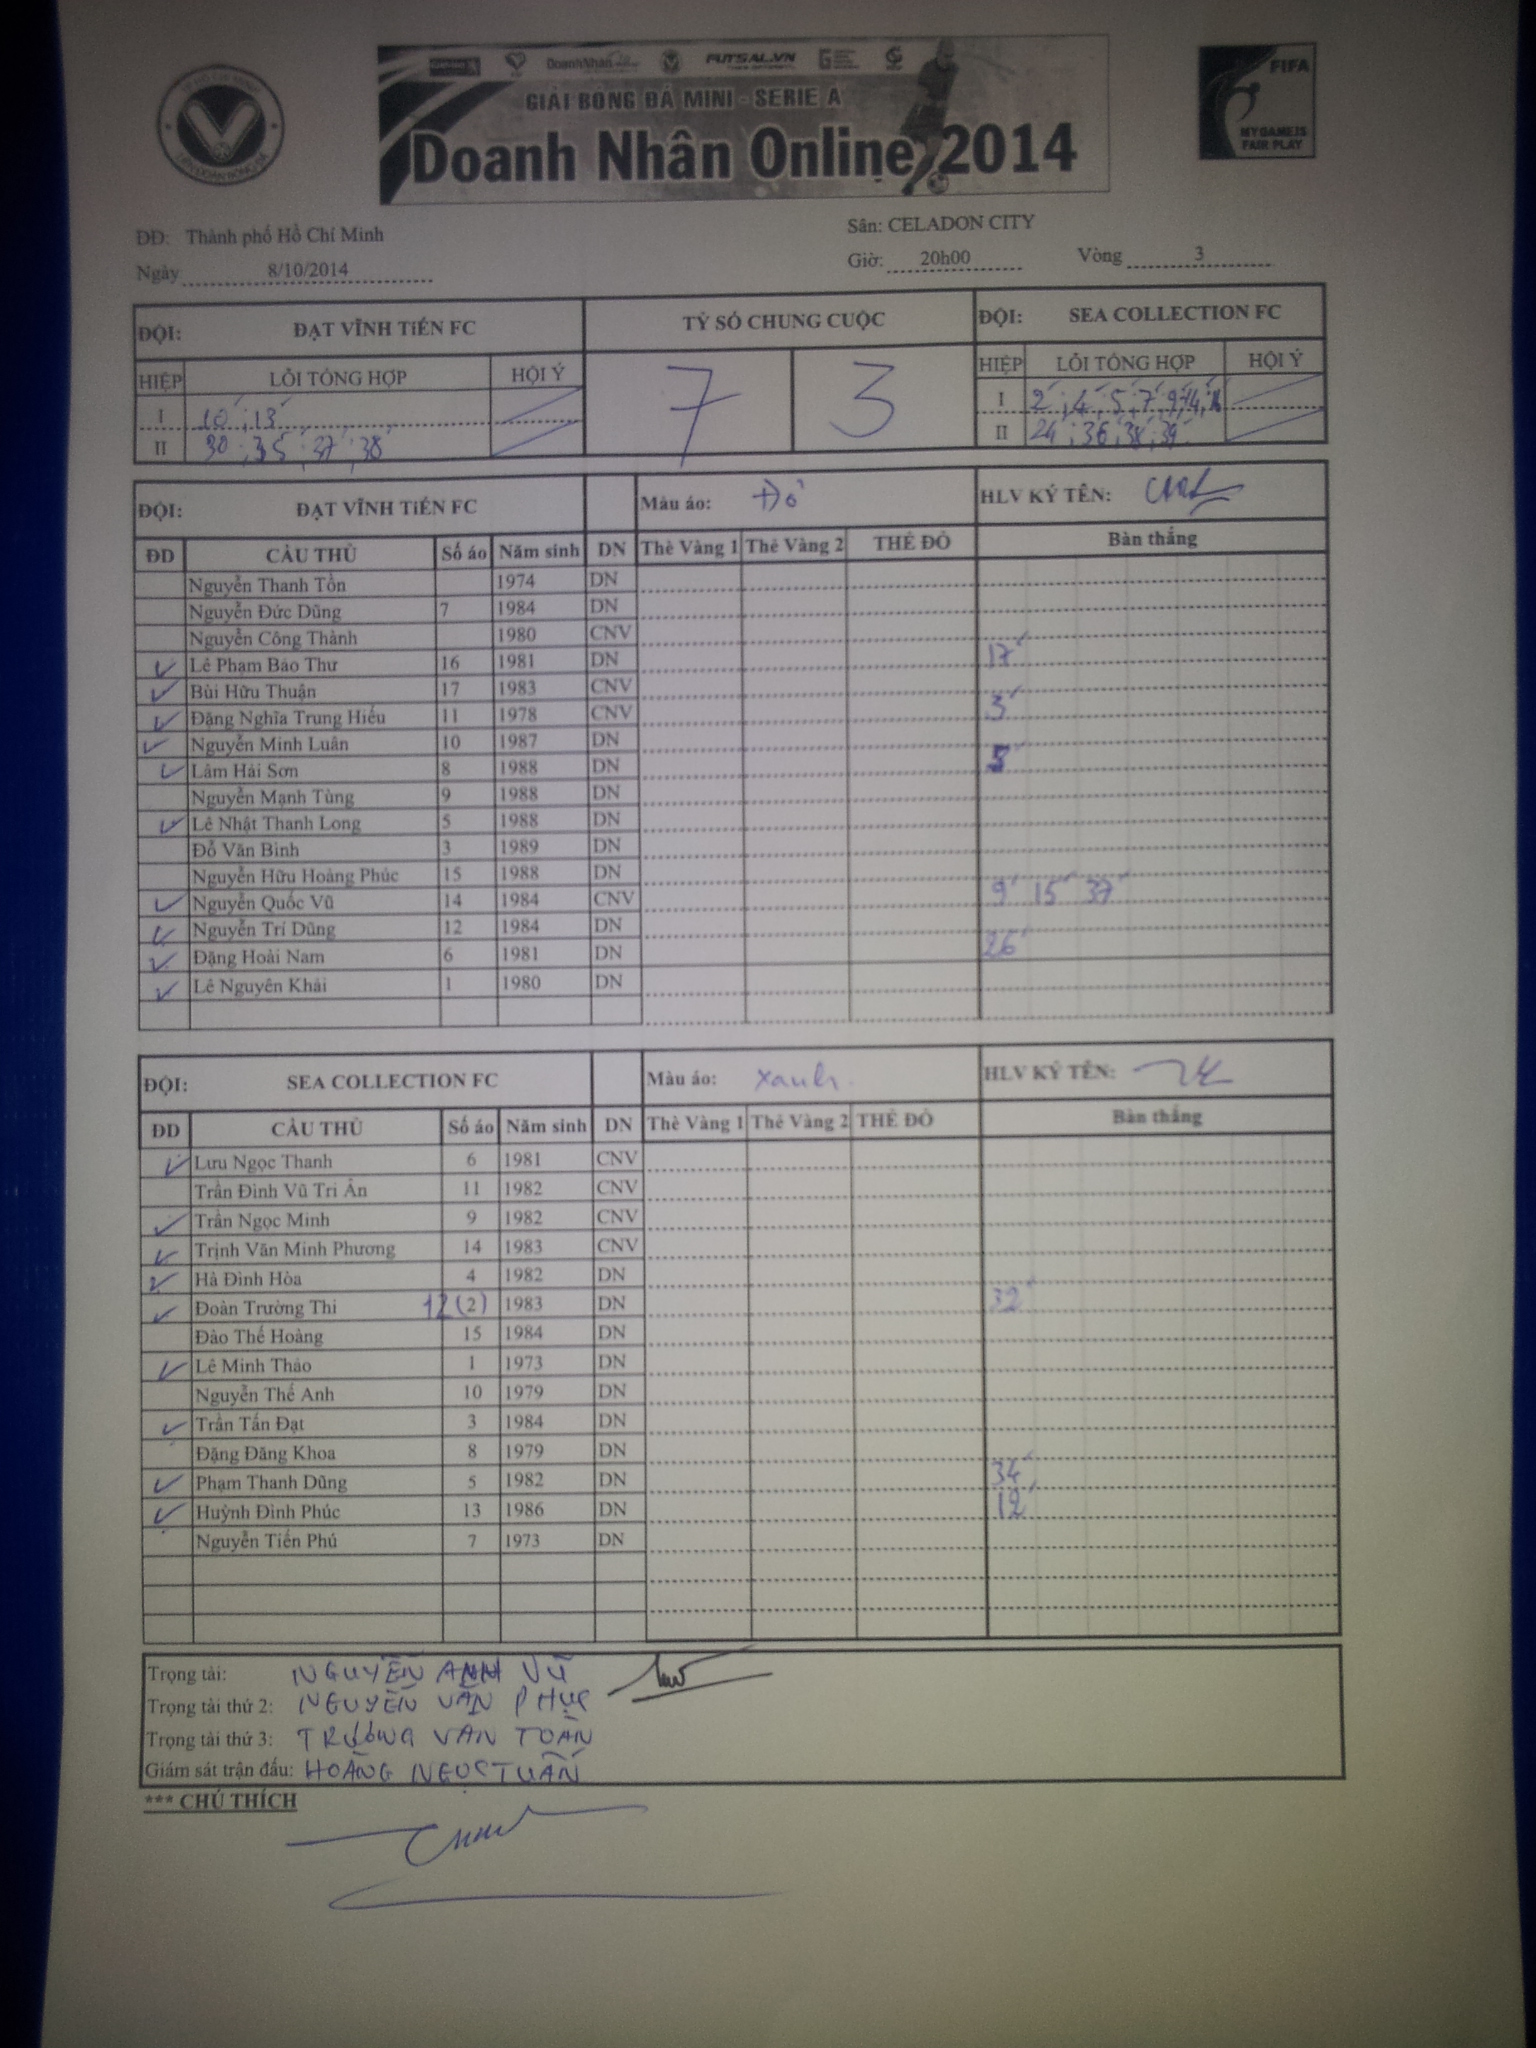 FUTSAL.VN
GIẢI BÓNG ĐÁ MINI - SERIE A
Doanh Nhân Online 2014
FIFA
MY GAME IS
FAIR PLAY
ĐĐ: Thành phố Hồ Chí Minh
Sân: CELADON CITY
Ngày 8/10/2014 Giờ: 20h00 Vòng 3
ĐỘI: ĐẠT VĨNH TIẾN FC TỶ SỐ CHUNG CUỘC ĐỘI: SEA COLLECTION FC
HIỆP LỖI TỔNG HỢP HỘI Ý 7 3 HIỆP LỖI TỔNG HỢP HỘI Ý
I 10' ; 13' I 2' ; 4' ; 5' ; 7' ; 9'
II 30' ; 35' ; 37' ; 38' II 24' ; 36' ; 38' ; 39'
ĐỘI: ĐẠT VĨNH TIẾN FC Màu áo: Đỏ HLV KÝ TÊN:
ĐD CẦU THỦ Số áo Năm sinh DN Thẻ Vàng 1 Thẻ Vàng 2 THẺ ĐỎ Bàn thắng
Nguyễn Thanh Tồn 1974 DN
Nguyễn Đức Dũng 7 1984 DN
Nguyễn Công Thành 1980 CNV
✓ Lê Phạm Bảo Thư 16 1981 DN 17'
✓ Bùi Hữu Thuận 17 1983 CNV
✓ Đặng Nghĩa Trung Hiếu 11 1978 CNV 3'
✓ Nguyễn Minh Luân 10 1987 DN
✓ Lâm Hải Sơn 8 1988 DN
Nguyễn Mạnh Tùng 9 1988 DN
✓ Lê Nhật Thanh Long 5 1988 DN
Đỗ Văn Bình 3 1989 DN
Nguyễn Hữu Hoàng Phúc 15 1988 DN
✓ Nguyễn Quốc Vũ 14 1984 CNV 9' 15' 37'
✓ Nguyễn Trí Dũng 12 1984 DN
✓ Đặng Hoài Nam 6 1981 DN 26'
✓ Lê Nguyên Khải 1 1980 DN
ĐỘI: SEA COLLECTION FC Màu áo: Xanh HLV KÝ TÊN:
ĐD CẦU THỦ Số áo Năm sinh DN Thẻ Vàng 1 Thẻ Vàng 2 THẺ ĐỎ Bàn thắng
✓ Lưu Ngọc Thanh 6 1981 CNV
Trần Đình Vũ Tri Ân 11 1982 CNV
✓ Trần Ngọc Minh 9 1982 CNV
✓ Trịnh Văn Minh Phương 14 1983 CNV
✓ Hà Đình Hòa 4 1982 DN
✓ Đoàn Trường Thi 12 (2) 1983 DN 32'
Đào Thế Hoàng 15 1984 DN
✓ Lê Minh Thảo 1 1973 DN
Nguyễn Thế Anh 10 1979 DN
✓ Trần Tấn Đạt 3 1984 DN
Đặng Đăng Khoa 8 1979 DN
✓ Phạm Thanh Dũng 5 1982 DN 34'
✓ Huỳnh Đình Phúc 13 1986 DN 12'
Nguyễn Tiến Phú 7 1973 DN
Trọng tài: NGUYỄN ANH VŨ
Trọng tài thứ 2: NGUYỄN VĂN PHỤC
Trọng tài thứ 3: TRƯƠNG VAN TOÀN
Giám sát trận đấu: HOÀNG NGỌC TUẤN
*** CHÚ THÍCH